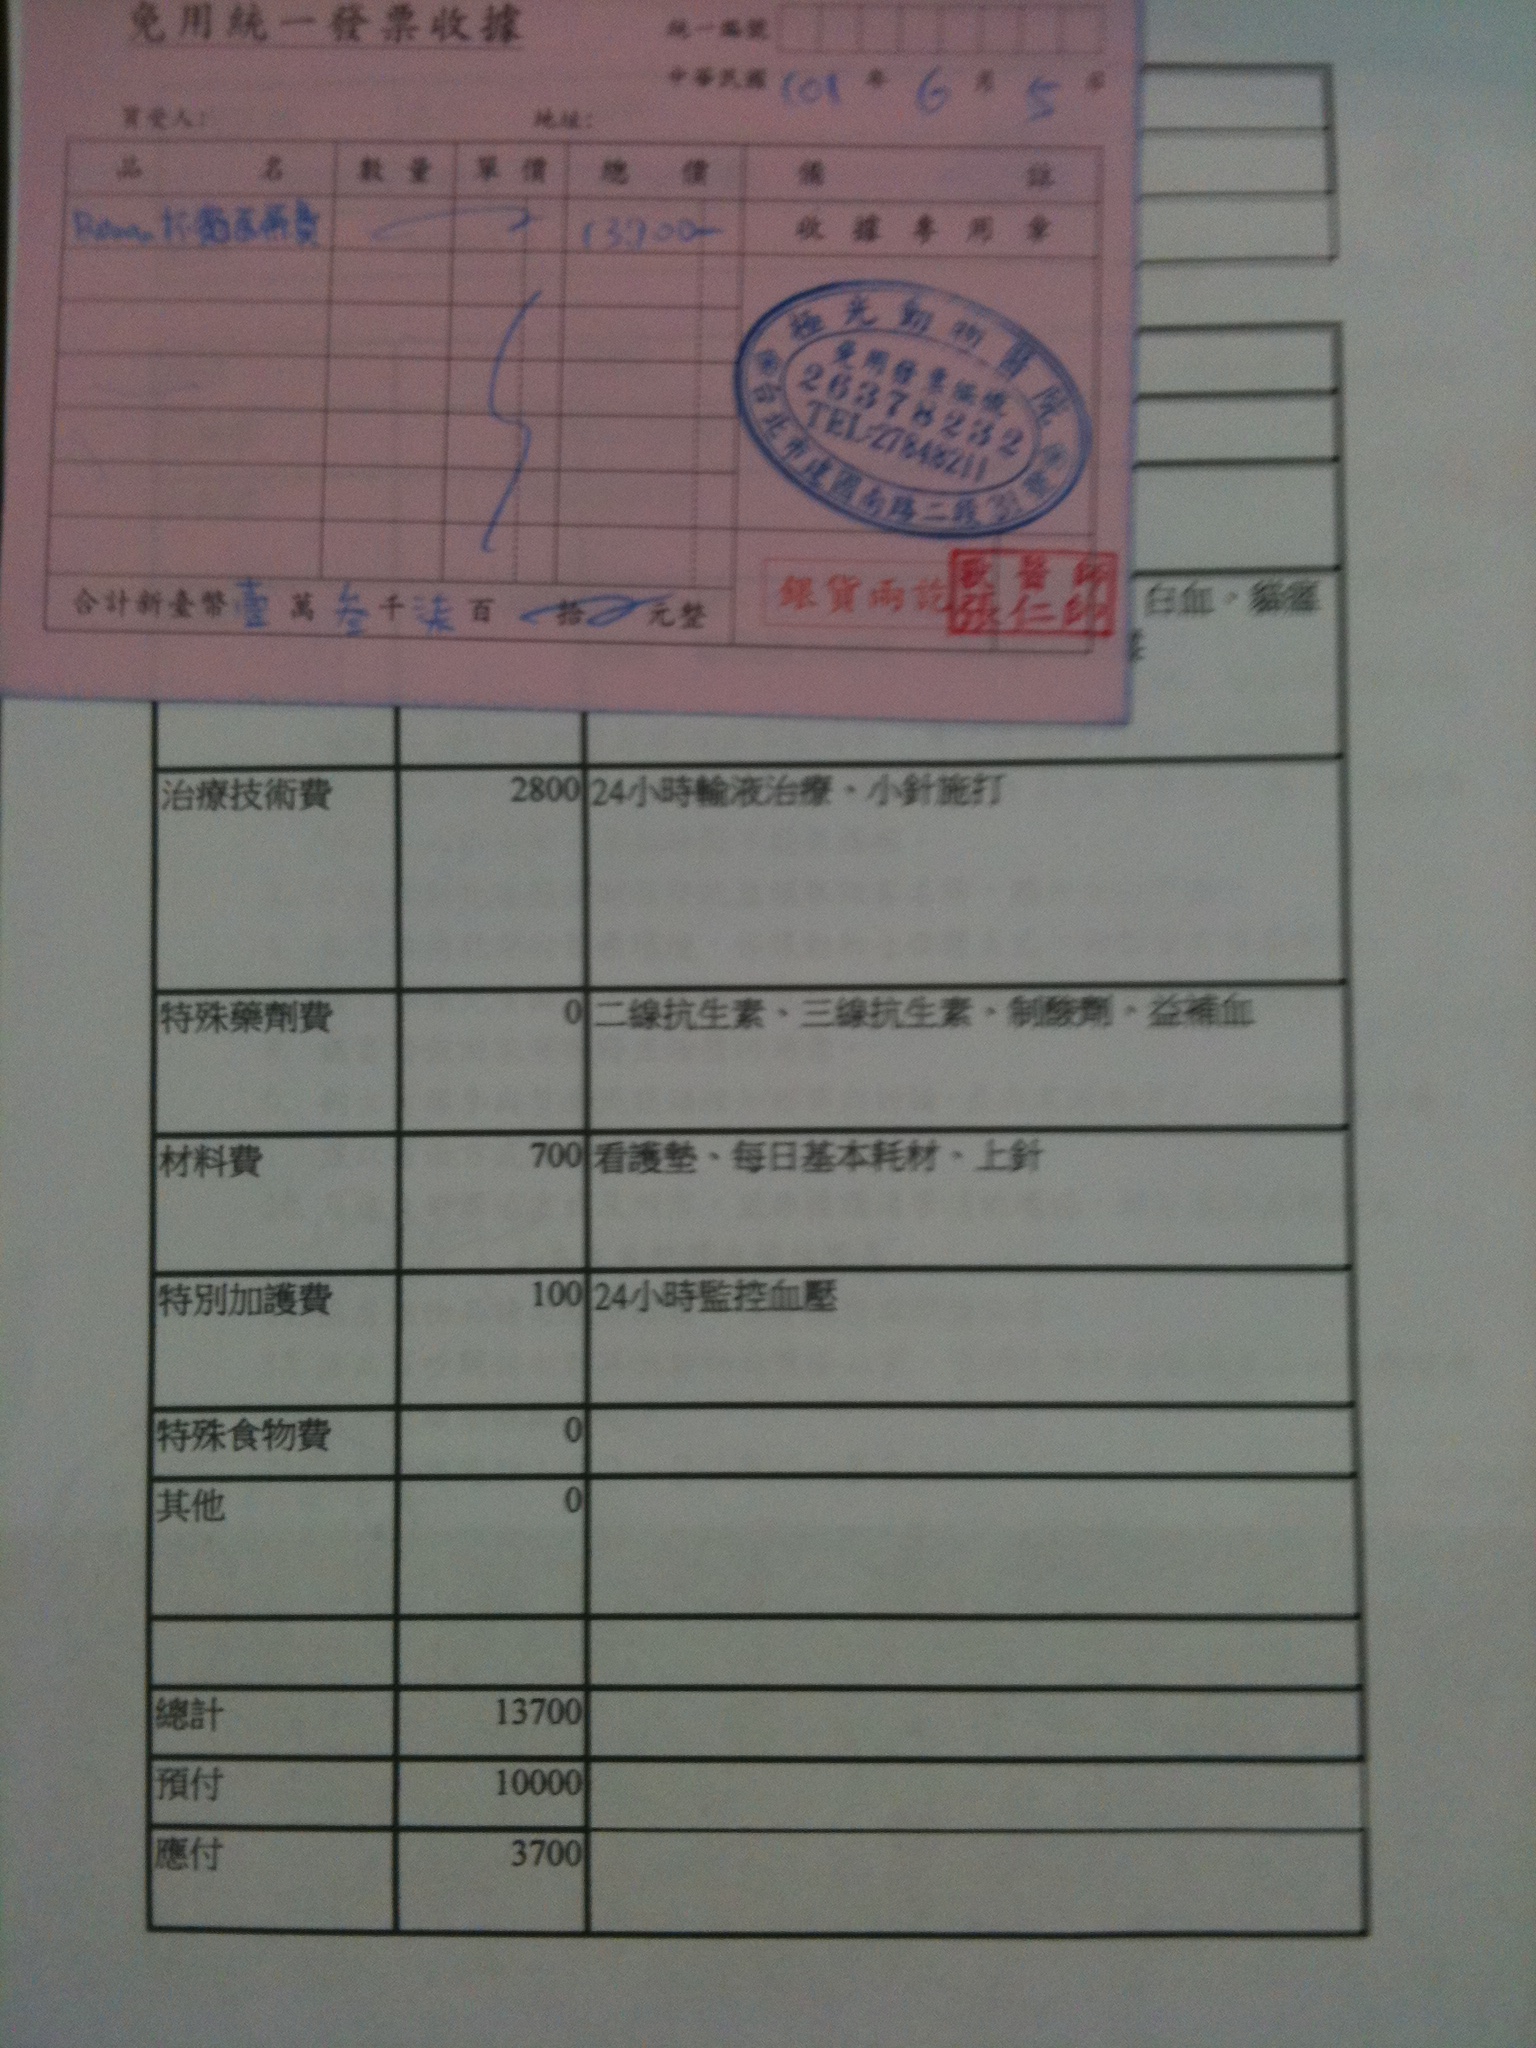 免用統一發票收據
統一編號
中華民國 101 年 6 月 5 日
買受人: 地址:
品名 數量 單價 總價 備註
13700 收據專用章
極光動物醫院
免用發票編號
26378232
TEL:27848211
台北市建國南路二段
合計新臺幣壹萬叁千柒百拾元整
銀貨兩訖
獸醫師
張仁帥
白血、貓
治療技術費 2800 24小時輸液治療、小針施打
特殊藥劑費 0 二線抗生素、三線抗生素、制酸劑、益補血
材料費 700 看護墊、每日基本耗材、上針
特別加護費 100 24小時監控血壓
特殊食物費 0
其他 0
總計 13700
預付 10000
應付 3700